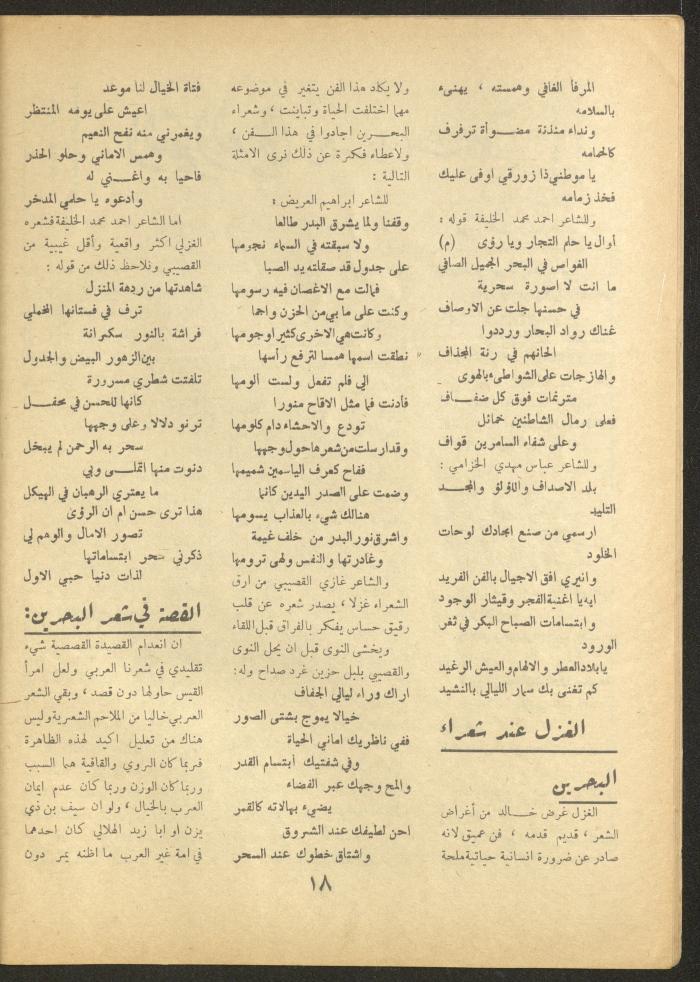 المرفأ الغافي وهمسته ، يهنىء
بالسلامه
ونداء مئذنة مضوأة ترفرف
كالحمامه
يا موطني ذا زورقي اوفى عليك
فخذ زمامه
وللشاعر احمد محمد الخليفة قوله :
أوال يا حلم التجار ويا رؤى (م)
الغواص في البحر الجميل الصافي
ما انت لا اصورة سحرية
في حسنها جلت عن الاوصاف
غناك رواد البحار ورددوا
الحانهم في رنة المجذاف
والهازجات على الشواطىء بالهوى
مترنمات فوق كل ضفاف
فعلى رمال الشاطئين خمائل
وعلى شفاء السامرين قواف
وللشاعر عباس مهدي الخزامي :
بلد الاصداف واللؤلؤ والمجد
التليد
ارسمي من صنع امجادك لوحات
الخلود
وانيري افق الاجيال بالفن الفريد
ايه يا اغنية الفجر وقيثار الوجود
وابتسامات الصباح البكر في ثغر
الورود
يا بلاد العطر والالهام والعيش الرغيد
كم تغنى بك سمار الليالي بالنشيد
الغزل عند شعراء
البحرين
الغزل غرض خالد من أغراض
الشعر ، قديم قدمه ، فن عميق لانه
صادر عن ضرورة انسانية حياتية ملحة
ولا يكاد هذا الفن يتغير في موضوعه
مهما اختلفت الحياة وتباينت ، وشعراء
البحرين اجادوا في هذا الفن ،
ولاعطاء فكرة عن ذلك نرى الامثلة
التالية :
للشاعر ابراهيم العريض :
وقفنا ولما يشرق البدر طالعا
ولا سبقته في السماء نجومها
على جدول قد صقلته يد الصبا
فمالت مع الاغصان فيه رسومها
وكنت على ما بي من الحزن واجما
وكانت هي الاخرى كثير اوجومها
نطقت اسمها همسا لترفع رأسها
الي فلم تفعل ولست الومها
فأدنت فما مثل الاقاح منورا
تودع والاحشاء دام كلومها
وقد ارسلت من شعرها حول وجهها
ففاح كعرف الياسمين شميمها
وضمت على الصدر اليدين كانما
هنالك شيء بالعذاب يسومها
واشرق نور البدر من خلف غيمة
وغادرتها والنفس ولهى ترومها
والشاعر غازي القصيبي من ارق
الشعراء غزلا ، يصدر شعره عن قلب
رقيق حساس يفكر بالفراق قبل اللقاء
ويخشى النوى قبل ان يحل النوى
والقصيبي بلبل حزين غرد صداح وله :
اراك وراء ليالي الجفاف
خيالا يموج بشتى الصور
ففي ناظريك اماني الحياة
وفي شفتيك ابتسام القدر
والمح وجهك عبر الفضاء
يضيء بهالاته كالقمر
احن لطيفك عند الشروق
واشتاق خطوك عند السحر
فتاة الخيال لنا موعد
اعيش على يومه المنتظر
ويغمرني منه نفح النعيم
وهمس الاماني وحلو الحذر
فاحيا به واغني له
وأدعوه يا حلمي المدخر
اما الشاعر احمد محمد الخليفة فشعره
الغزلي اكثر واقعية وأقل غيبية من
القصيبي ونلاحظ ذلك من قوله :
شاهدتها من ردهة المنزل
ترف في فستانها المخملي
فراشة بالنور سكرانة
بين الزهور البيض والجدول
تلفتت شطري مسرورة
كانها للحسن في محفل
ترنو دلالا وعلى وجهها
سحر به الرحمن لم يبخل
دنوت منها اتملى وبي
ما يعتري الرهبان في الهيكل
هذا ترى حسن ام ان الرؤى
تصور الامال والوهم لي
ذكرني سحر ابتساماتها
لذات دنيا حبي الاول
القصة في شعر البحرين :
ان انعدام القصيدة القصصية شيء
تقليدي في شعرنا العربي ولعل امرأ
القيس حاولها دون قصد ، وبقي الشعر
العربي خاليا من الملاحم الشعرية وليس
هناك من تعليل اكيد لهذه الظاهرة
فربما كان الروي والقافية هما السبب
وربما كان الوزن وربما كان عدم ايمان
العرب بالخيال ، ولو ان سيف بن ذي
يزن او ابا زيد الهلالي كان احدهما
في امة غير العرب ما اظنه يمر دون
١٨